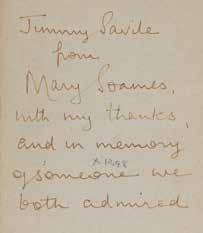 Jimmy Savile
from
Mary Soames,
with my thanks,
and in memory
of someone we
both admired